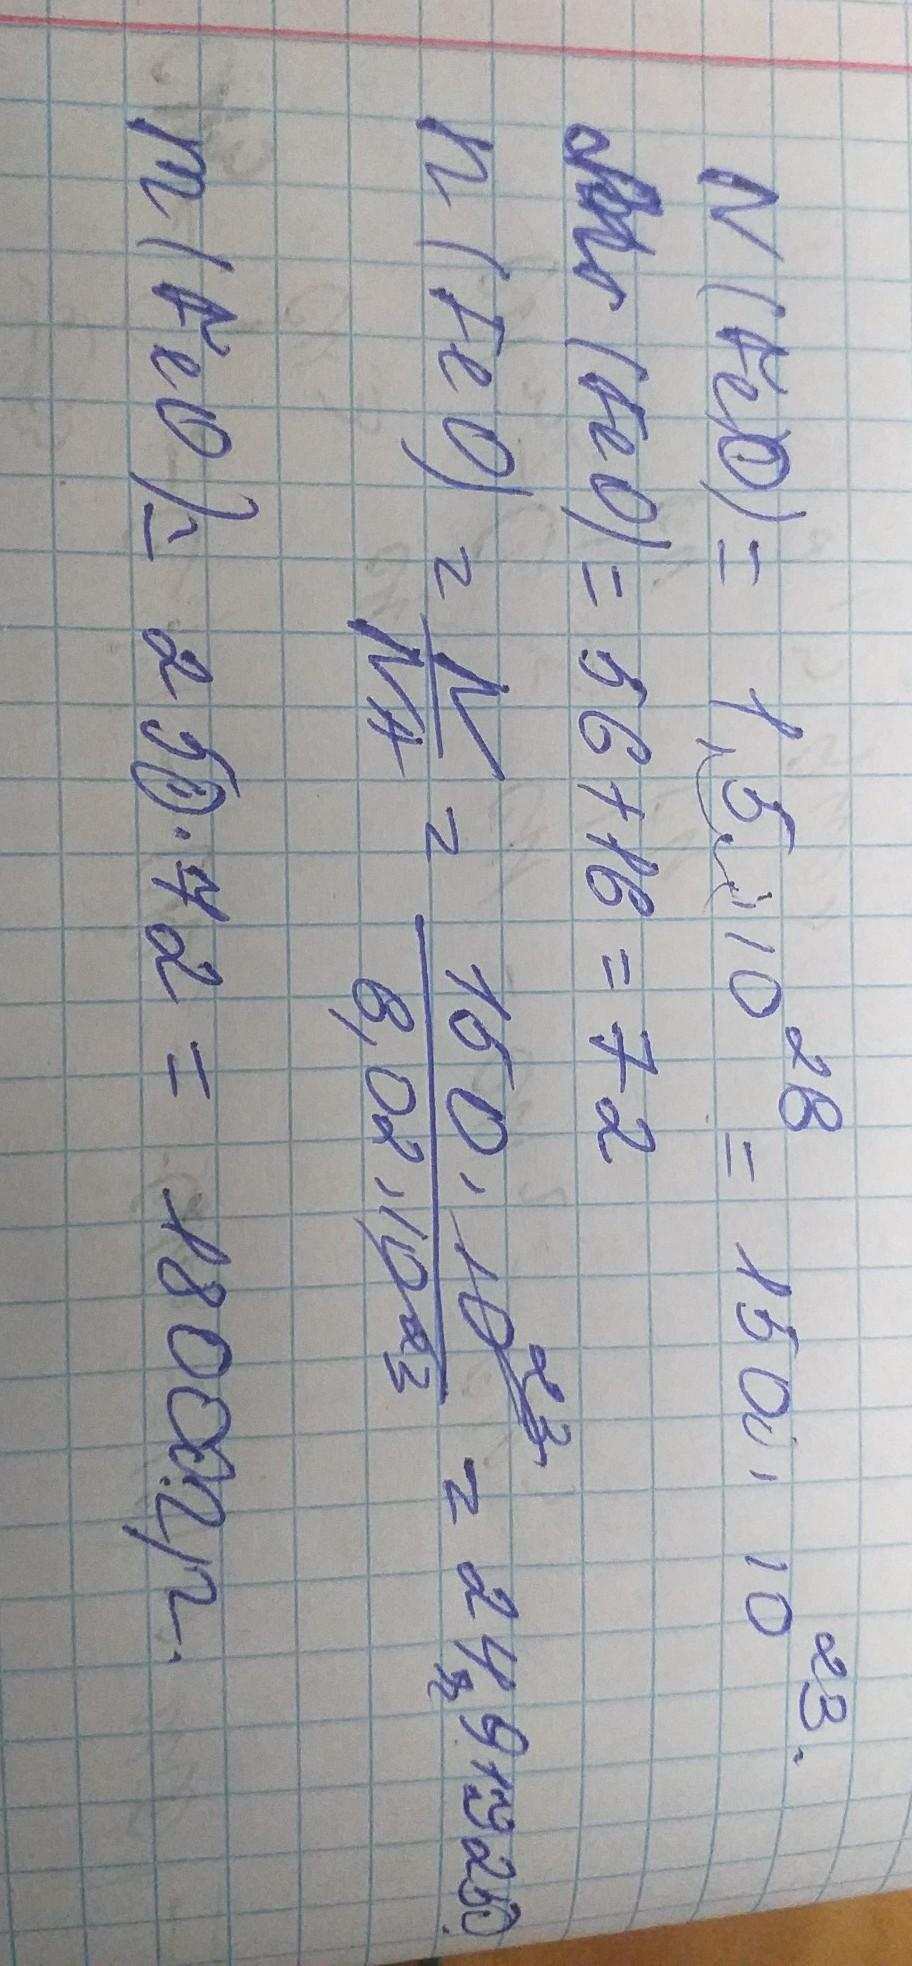 N(FeO) = 1,5 · 10^28 = 150 · 10^23.
Mr(FeO) = 56 + 16 = 72
n(FeO) = N/NA = 150 · 10^23 / 6,02 · 10^23 = 24,91 ≈ 250
m(FeO) = 250 · 72 = 1800 г.